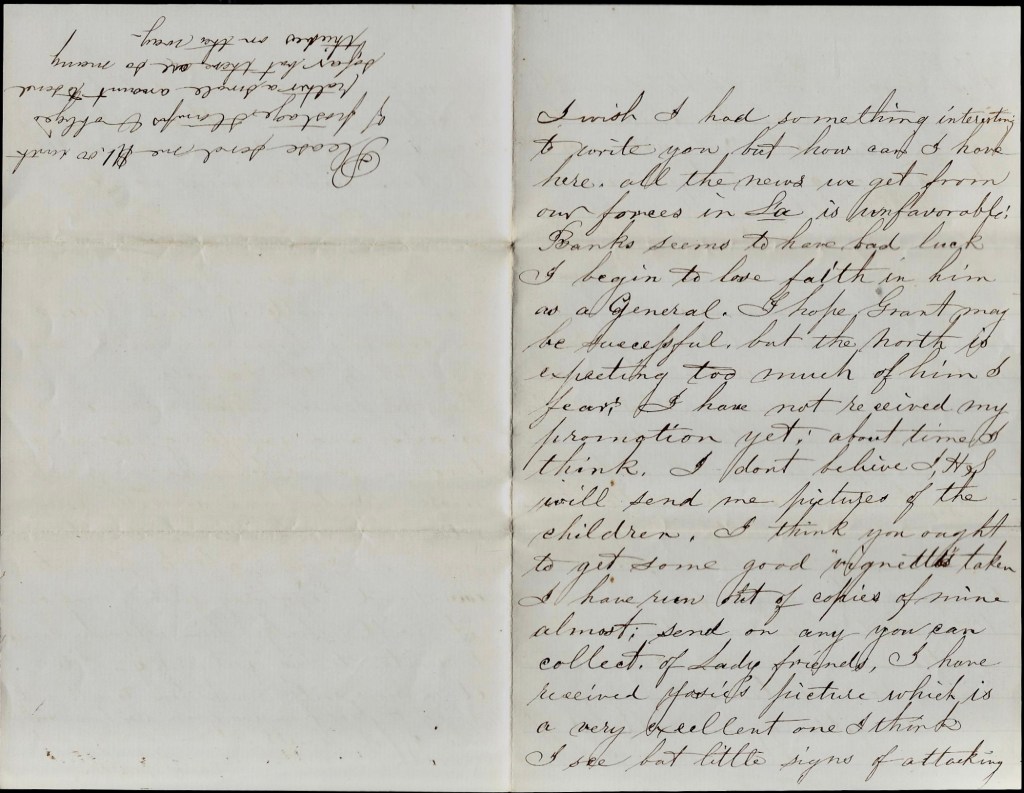 I wish I had something interesting
to write you but how can I have
here. all the news we get from
our forces in La is unfavorable;
Banks seems to have bad luck
I begin to lose faith in him
as a General. I hope Grant may
be successful. but the North is
expecting too much of him I
fear; I have not received my
promotion yet; about time I
think. I dont believe J, H, S
will send me pictures of the
children. I think you ought
to get some good "vignetts" taken
I have run out of copies of mine
almost; send on any you can
collect. of Lady friends, I have
received picture which is
a very excellent one I think
I see but little signs of attacking
Please send me $1.00 worth
of postage Stamps & oblige
rather a small amount to send
so far but there are so many
thieves on the way-